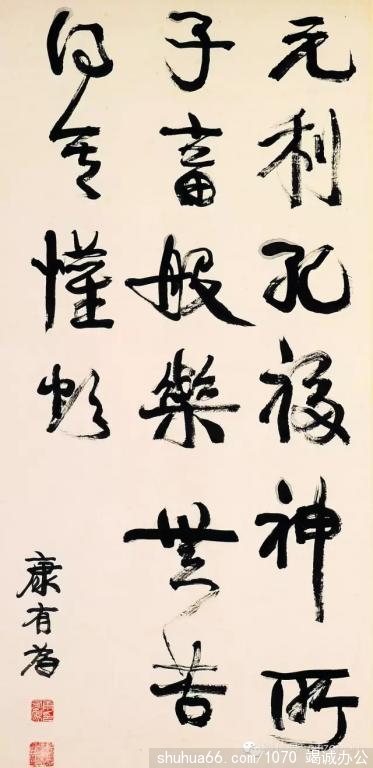 元利孔福神所
子畜般樂無苦
得其懽欣
康有為
shuhua66.com/1070 竭诚办公